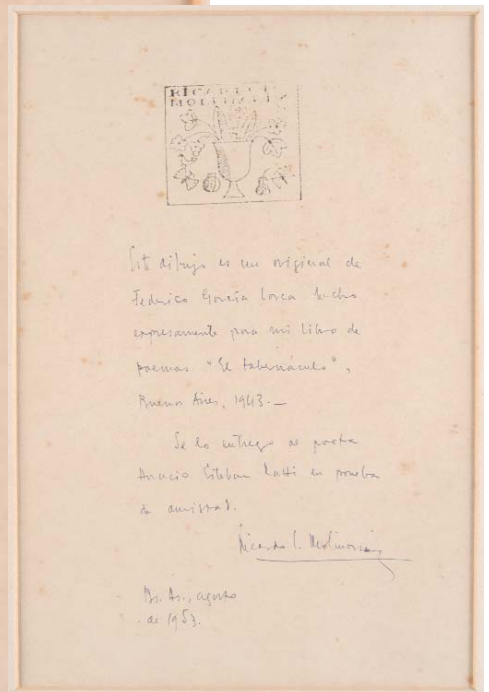 RICARDO E.
MOLINARI
Este dibujo es un original de
Federico García Lorca hecho
expresamente para mi libro de
poemas "El tabernáculo",
Buenos Aires, 1943.—
Se lo entrego al poeta
Esteban Ratti en prueba
de amistad.
Ricardo E. Molinari
Bs. As., agosto
de 1953.